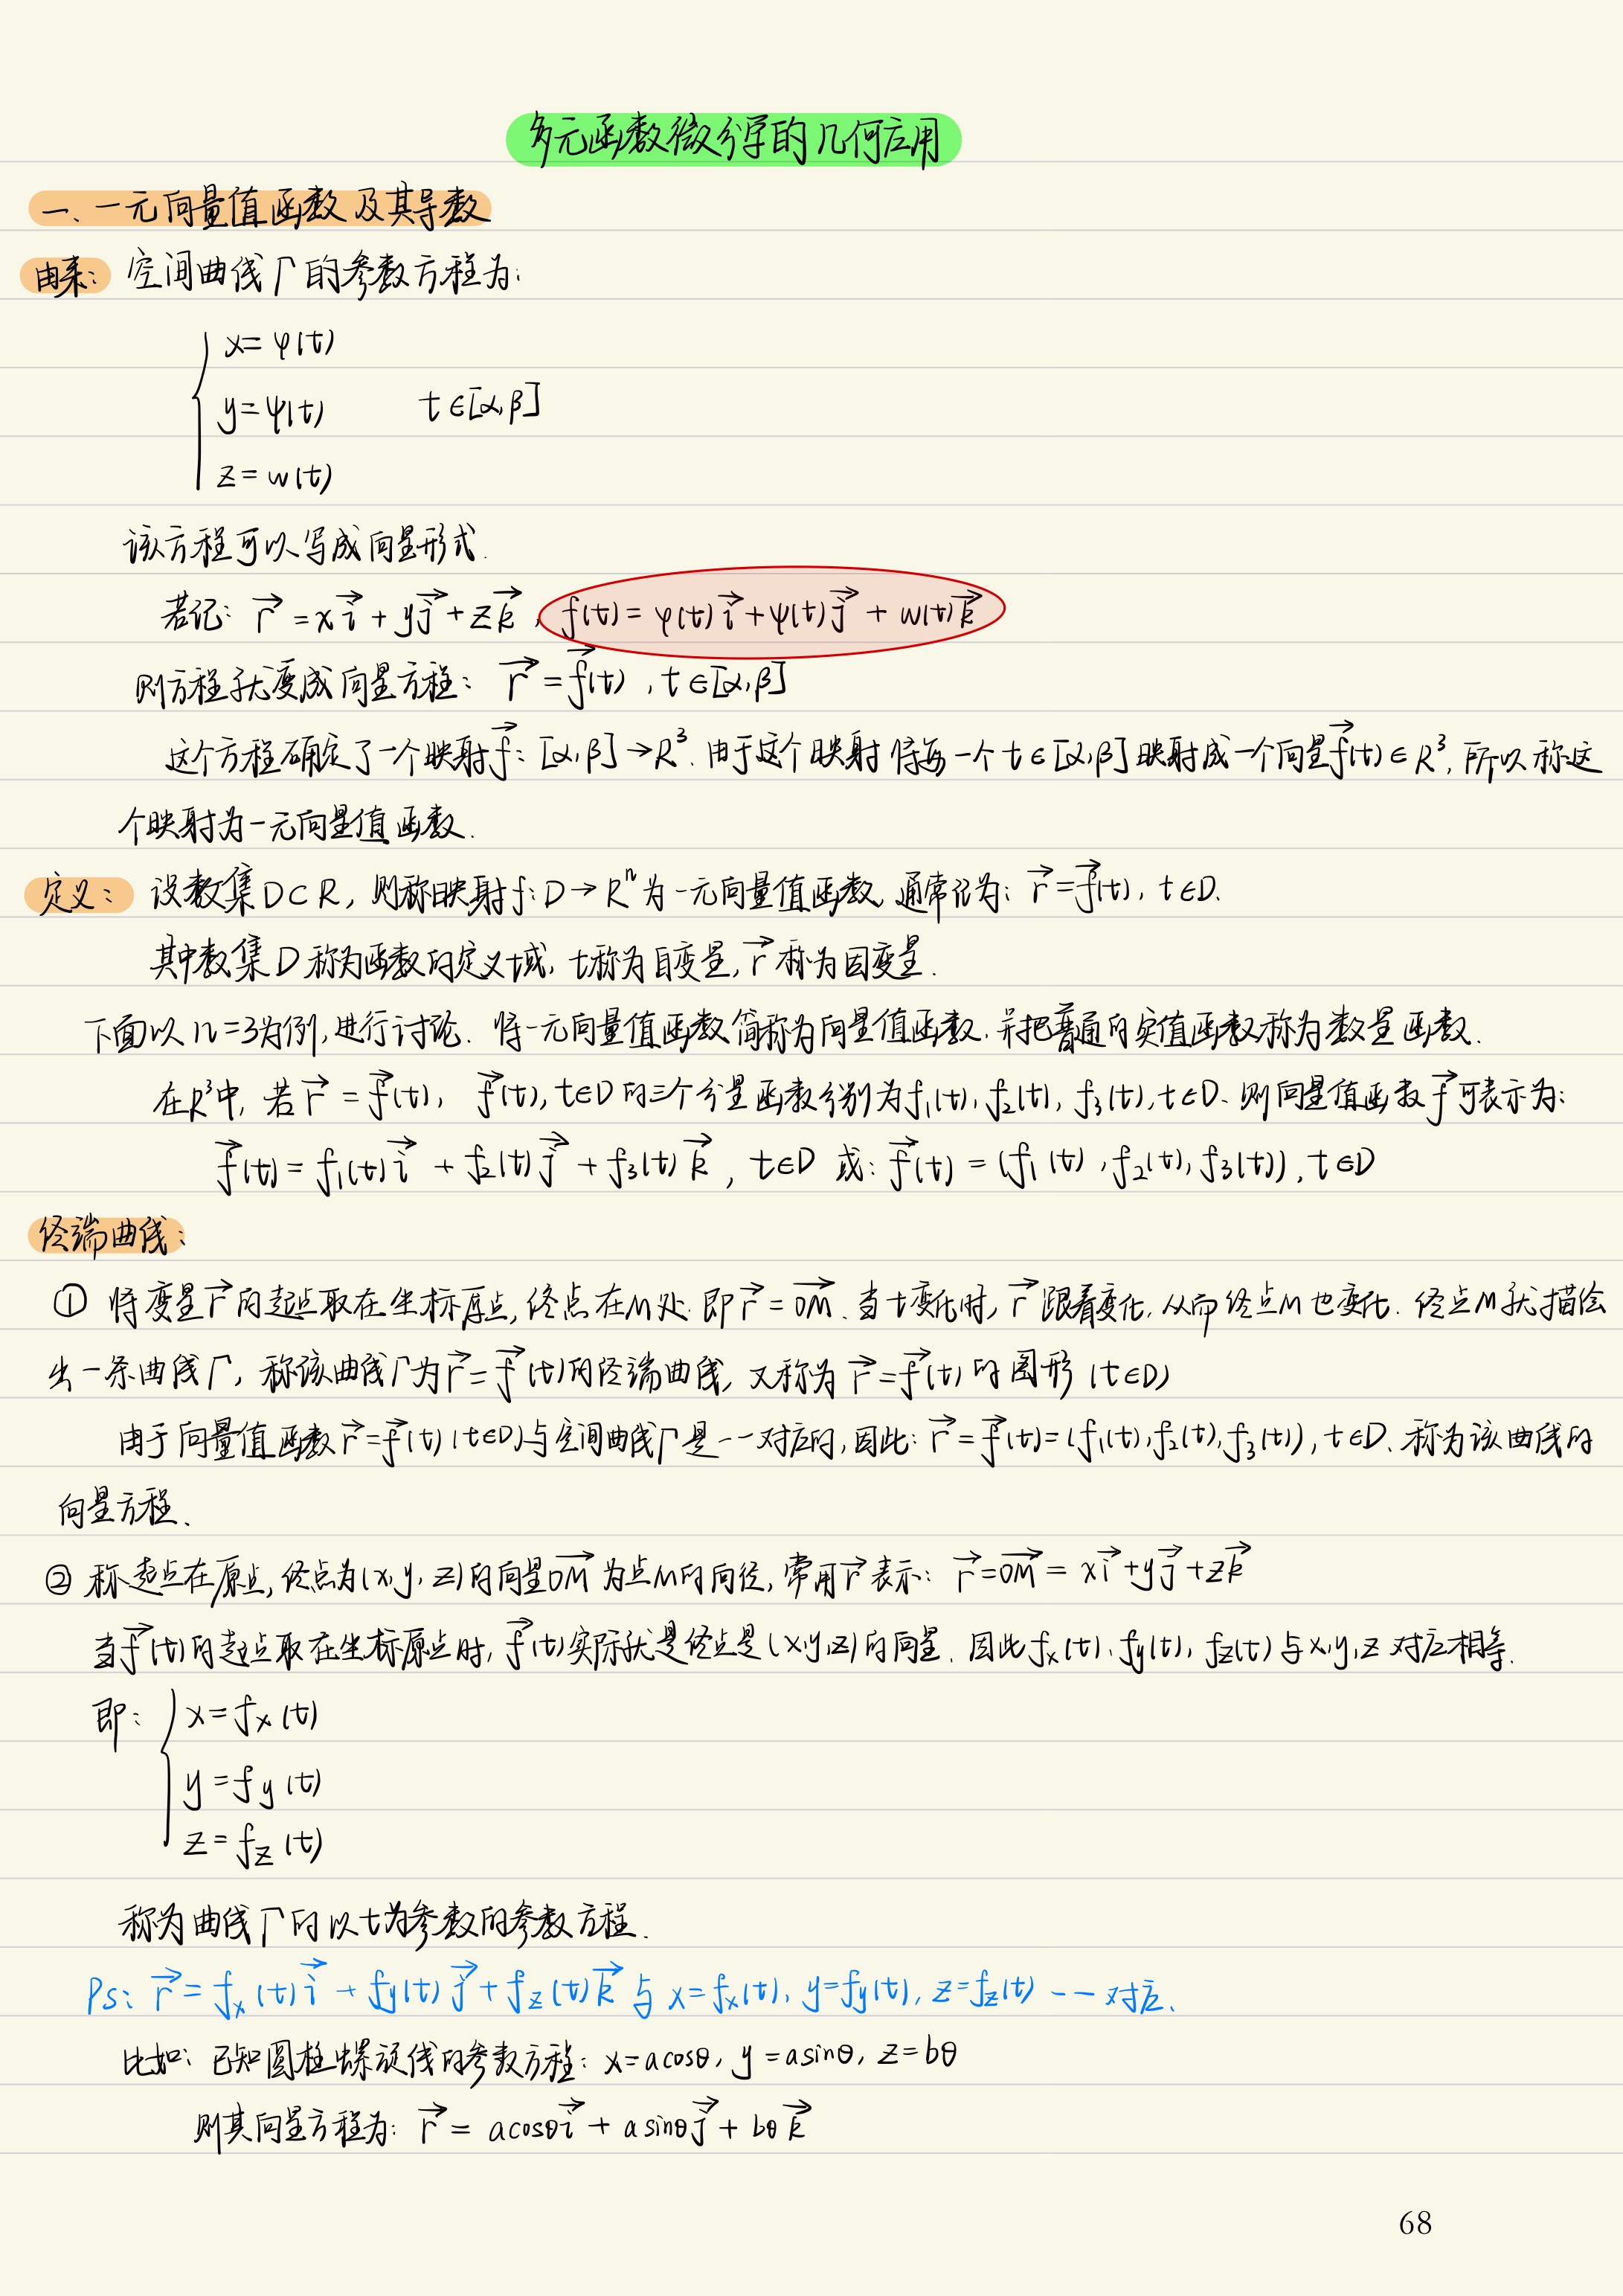 多元函数微分学的几何应用
一、一元向量值函数及其导数
由来: 空间曲线Γ的参数方程为:
x=φ(t)
y=ψ(t) t∈[α,β]
z=w(t)
该方程可以写成向量形式.
若记: r⃗ = xi⃗ + yj⃗ + zk⃗, f(t) = φ(t)i⃗ + ψ(t)j⃗ + w(t)k⃗
则方程就变成向量方程: r⃗ = f⃗(t), t∈[α,β]
这个方程确定了一个映射f⃗: [α,β]→R³. 由于这个映射将每一个t∈[α,β]映射成一个向量f⃗(t)∈R³, 所以称这
个映射为一元向量值函数.
定义: 设数集D⊂R, 则称映射f: D→Rⁿ为一元向量值函数, 通常记为: r⃗=f⃗(t), t∈D.
其中数集D称为函数的定义域, t称为自变量, r⃗称为因变量.
下面以n=3为例, 进行讨论. 将一元向量值函数简称为向量值函数. 并把普通的实值函数称为数量函数.
在R³中, 若r⃗ = f⃗(t), f⃗(t), t∈D的三个分量函数分别为f₁(t), f₂(t), f₃(t), t∈D、则向量值函数f⃗可表示为:
f⃗(t) = f₁(t)i⃗ + f₂(t)j⃗ + f₃(t)k⃗, t∈D 或: f⃗(t) = (f₁(t), f₂(t), f₃(t)), t∈D
终端曲线:
① 将变量r⃗的起点取在坐标原点, 终点在M处. 即r⃗ = OM⃗. 当t变化时, r⃗跟着变化, 从而终点M也变化. 终点M就描绘
出一条曲线Γ, 称该曲线Γ为r⃗=f⃗(t)的终端曲线, 又称为r⃗=f⃗(t)的图形 (t∈D)
由于向量值函数r⃗=f⃗(t)(t∈D)与空间曲线Γ是一一对应的, 因此: r⃗=f⃗(t)=(f₁(t),f₂(t),f₃(t)), t∈D、称为该曲线的
向量方程、
② 称起点在原点, 终点为(x,y,z)的向量OM⃗为点M的向径, 常用r⃗表示: r⃗=OM⃗= xi⃗+yj⃗+zk⃗
当f⃗(t)的起点取在坐标原点时, f⃗(t)实际就是终点是(x,y,z)的向量. 因此fₓ(t)、f_y(t), f_z(t)与x,y,z对应相等.
即: x=fₓ(t)
y=f_y(t)
z=f_z(t)
称为曲线Γ的以t为参数的参数方程.
Ps: r⃗= fₓ(t)i⃗ + f_y(t)j⃗ + f_z(t)k⃗ 与 x=fₓ(t), y=f_y(t), z=f_z(t) 一一对应、
比如: 已知圆柱螺旋线的参数方程: x=acosθ, y=asinθ, z=bθ
则其向量方程为: r⃗= acosθi⃗ + asinθj⃗ + bθk⃗
68